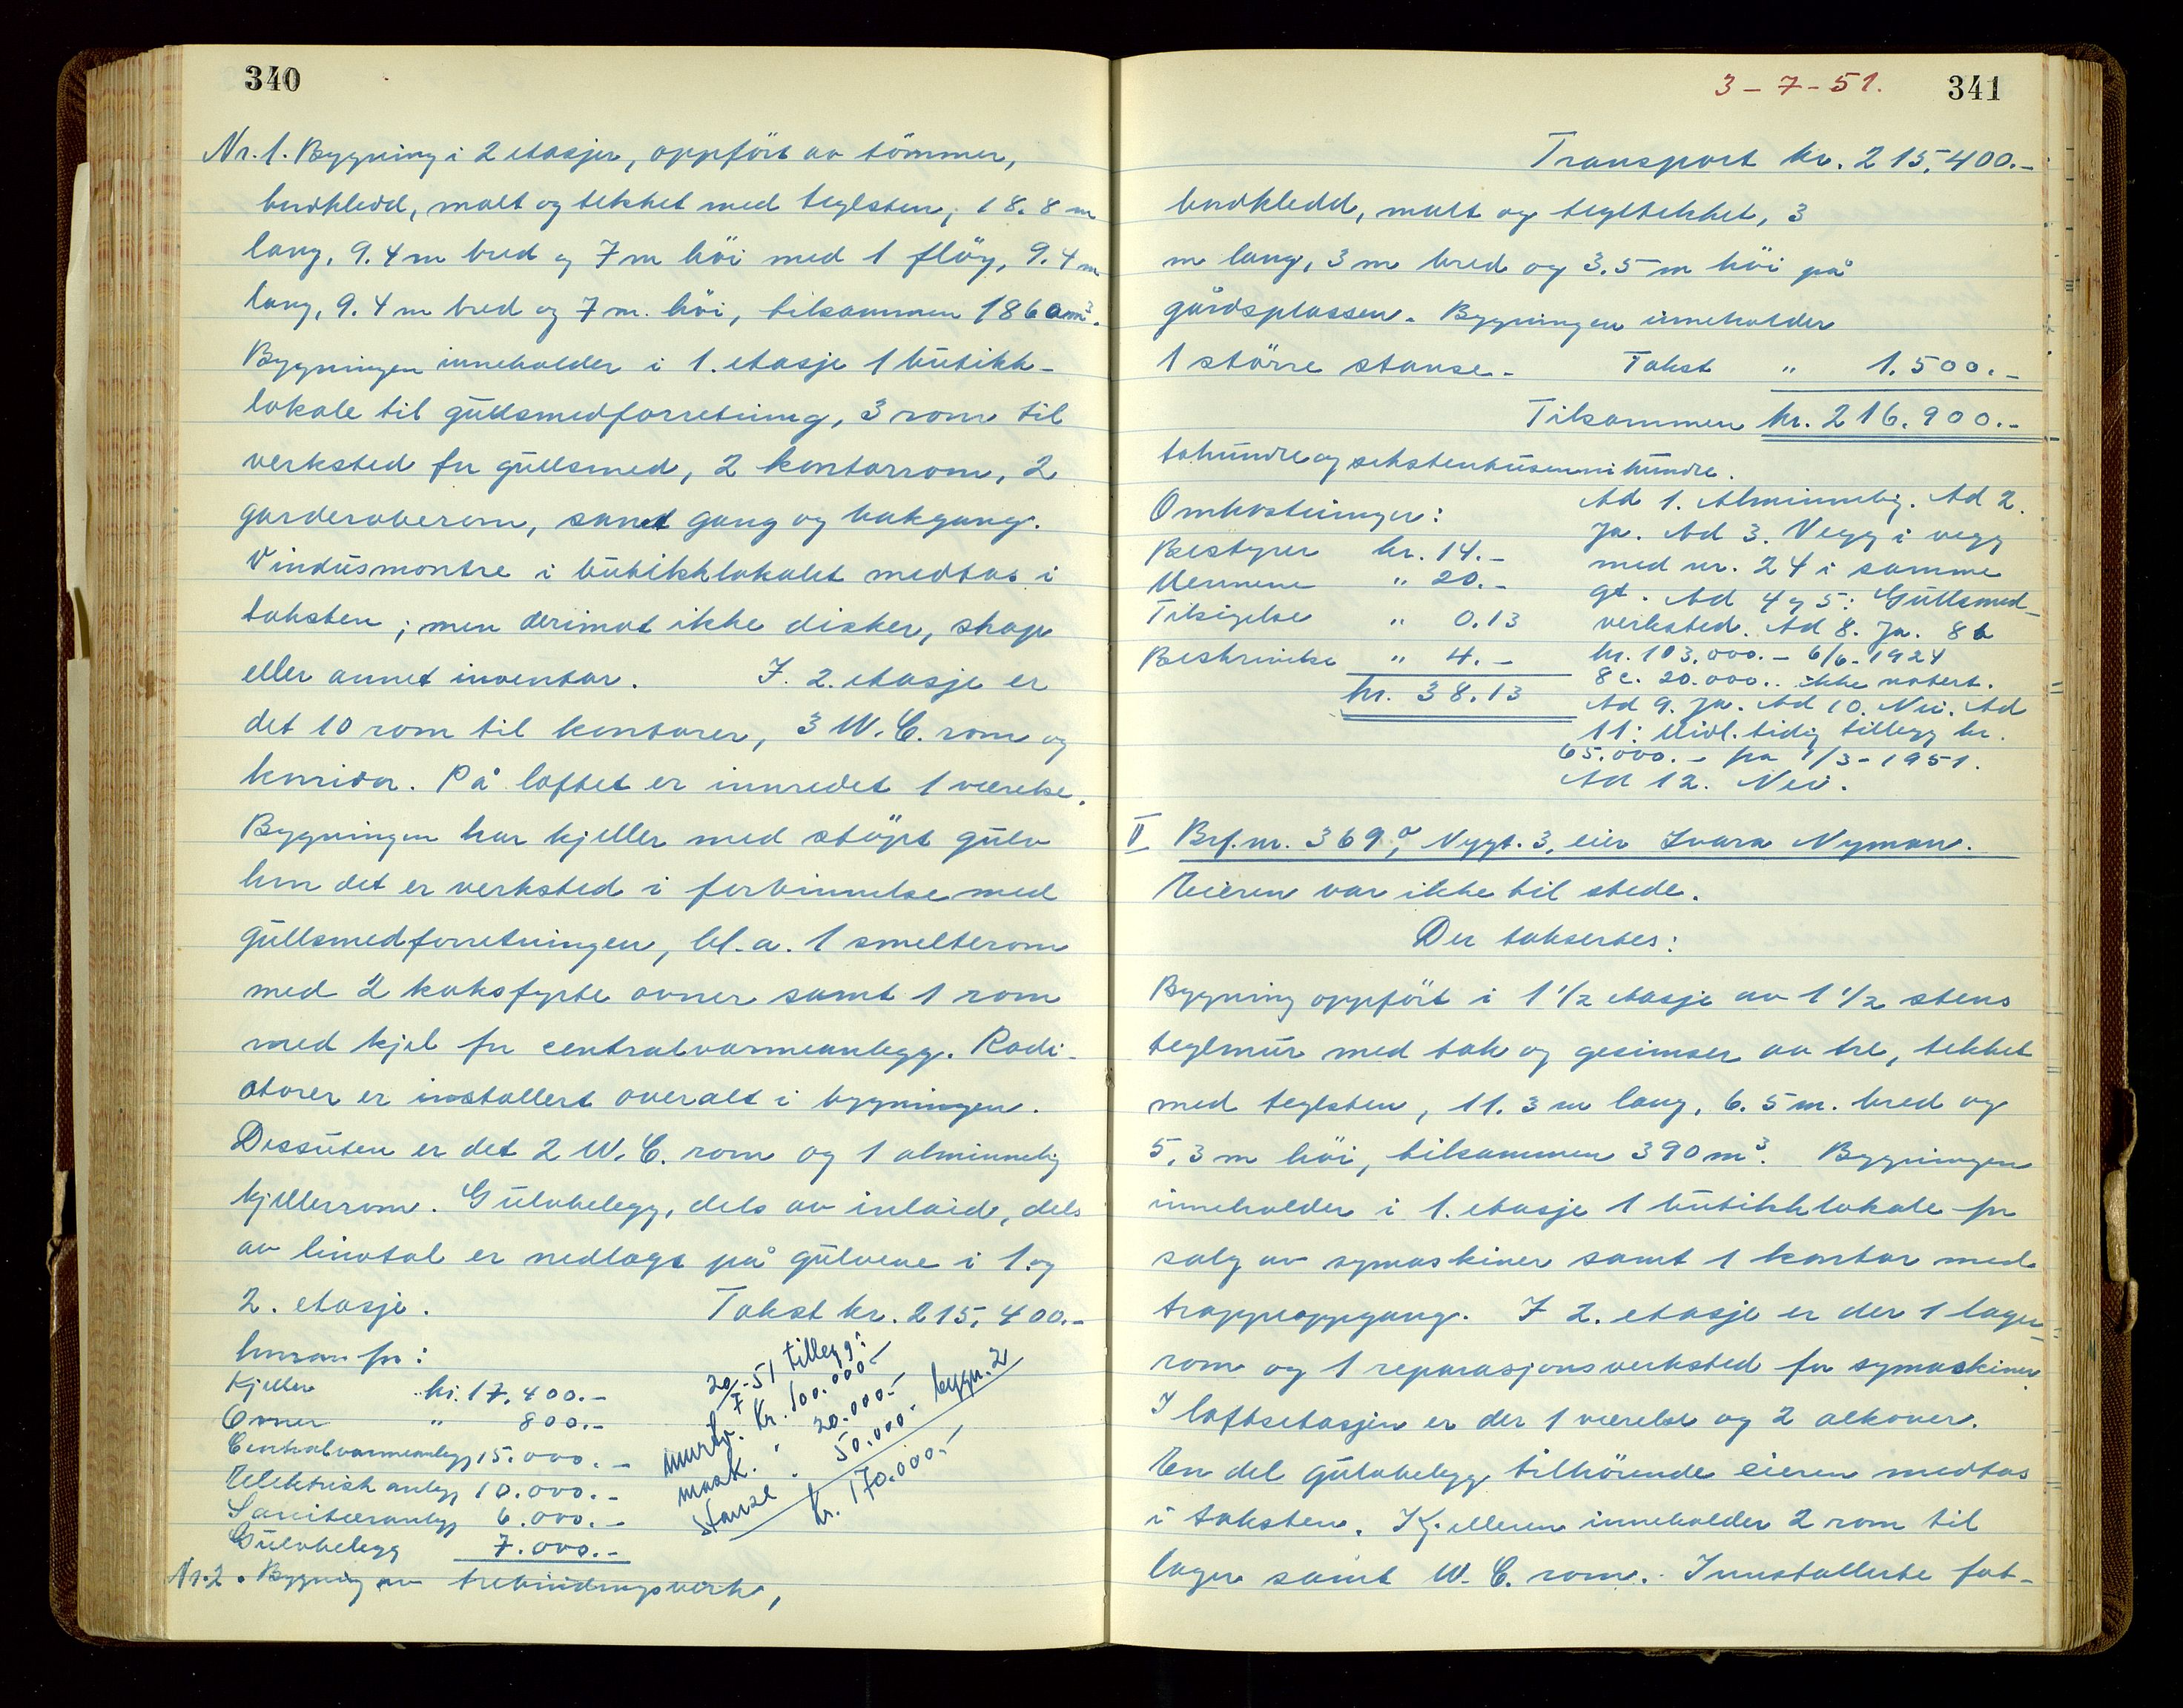 340
Nr. 1. Bygning i 2 etasjer, oppført av tömmer,
bordkledd, malt og tekket med teglsten, 18.8 m
lang, 9.4 m bred og 7 m höi med 1 flöy, 9.4 m
lang, 9.4 m bred og 7 m. höi, tilsammen 1860 m³.
Bygningen inneholder i 1. etasje 1 butikk-
lokale til gullsmedforretning, 3 rom til
verksted for gullsmed, 2 kontorrom, 2
garderoberom, samt gang og bakgang.
Vindusmontre i butikklokalet medtas i
taksten; men derimot ikke disker, skap
eller annet inventar. I. 2. etasje er
det 10 rom til kontorer, 3 W.C. rom og
korridor. På loftet er innredet 1 værelse.
Bygningen har kjeller med stöpt gulv
hvor det er verksted i forbinnelse med
gullsmedforretningen, bl.a. 1 smelterom
med 2 koksfyrte ovner samt 1 rom
med kjel for centralvarmeanlegg. Radi-
atorer er installert overalt i bygningen.
Dessuten er det 2 W.C. rom og 1 alminnelig
kjellerrom. Gulvbelegg, dels av inlaid, dels
av linotol er nedlagt på gulvene i 1. og
2. etasje. Takst kr. 215.400.-
hvorav for:
Kjeller kr. 17.400.-
Ovner " 800.-
Centralvarmeanlegg 15.000.-
Elektrisk anlegg 10.000.-
Sanitæranlegg 6.000.-
Gulvbelegg 7.000.-
20/I-51 tillegg:
murbr. kr. 100.000.-
mask. " 20.000.-
stanse " 50.000.- bygn. 2
kr. 170.000.-
Nr. 2. Bygning av trebindingsverk,
3-7-51. 341
Transport kr. 215.400.-
bordkledd, malt og tegltekket, 3
m lang, 3 m bred og 3.5 m höi på
gårdsplassen. Bygningen inneholder
1 större stanse. Takst " 1.500.-
Tilsammen kr. 216.900.-
tohundreogsekstentusennihundre.
Omkostninger:
Bestyrer kr. 14.-
Mennene " 20.-
Tilsigelse " 0.13
Beskrivelse " 4.-
kr. 38.13
Ad 1. Alminnelig. Ad 2.
Ja. Ad 3. Vegg i vegg
med nr. 24 i samme
gt. Ad 4 og 5: Gullsmed-
verksted. Ad 8. Ja. 8 b
kr. 103.000.- 6/6-1924
8 c. 20.000.. ikke notert.
Ad 9. Ja. Ad 10. Nei. Ad
11: Midl.tidig tillegg kr.
65.000.- fra 1/3-1951.
Ad 12. Nei.
II Brf. nr. 369a, Nygt. 3, eier Ivara Nyman.
Eieren var ikke til stede.
Der taksertes:
Bygning oppfört i 1 1/2 etasje av 1 1/2 stens
teglmur med tak og gesimser av tre, tekket
med teglsten, 11.3 m lang, 6.5 m. bred og
5.3 m höi, tilsammen 390 m³. Bygningen
inneholder i 1. etasje 1 butikklokale for
salg av symaskiner samt 1 kontor med
trappeoppgang. I 2. etasje er der 1 lager-
rom og 1 reparasjonsverksted for symaskiner
I loftsetasjen er der 1 værelse og 2 alkover.
En del gulvbelegg tilhörende eieren medtas
i taksten. Kjelleren inneholder 2 rom til
lager samt W.C. rom. Innstallerte fat-